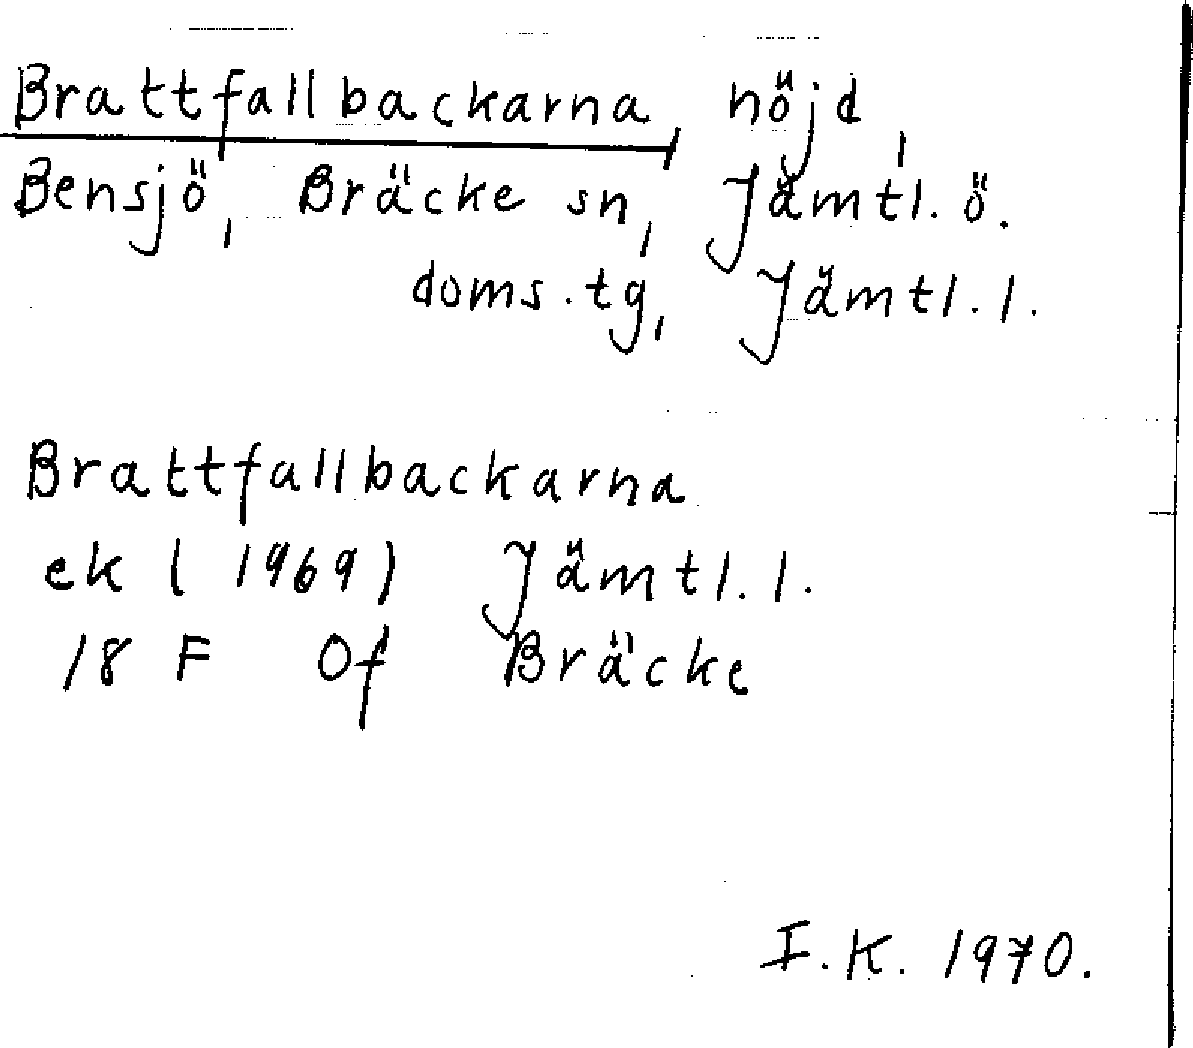 Brattfallbackarna, höjd,
Bensjö, Bräcke sn, Jämtl. ö.
doms.tg, Jämtl. l.
Brattfallbackarna
ek (1969) Jämtl. l.
18 F Of Bräcke
I.K. 1970.